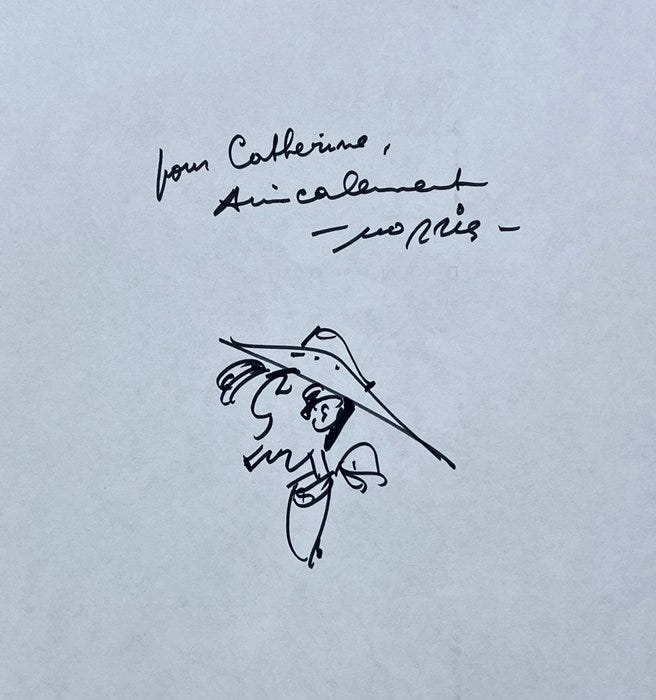 pour Catherine,
Amicalement
- morris -